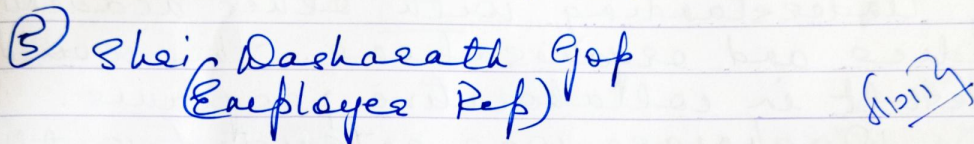 ⑤ Shri Dasharath Gop
(Employee Rep)